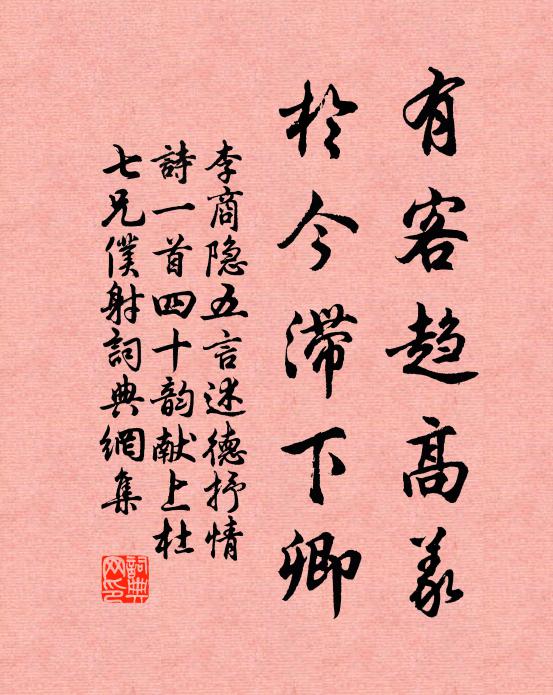 有客趋高義
於今滞下卿
李商隐五言述德抒情
詩一首四十韵献上杜
七兄僕射詞典網集
詞典
网印